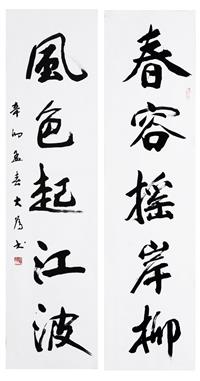 春容摇岸柳
風色起江波
辛卯孟春大為书